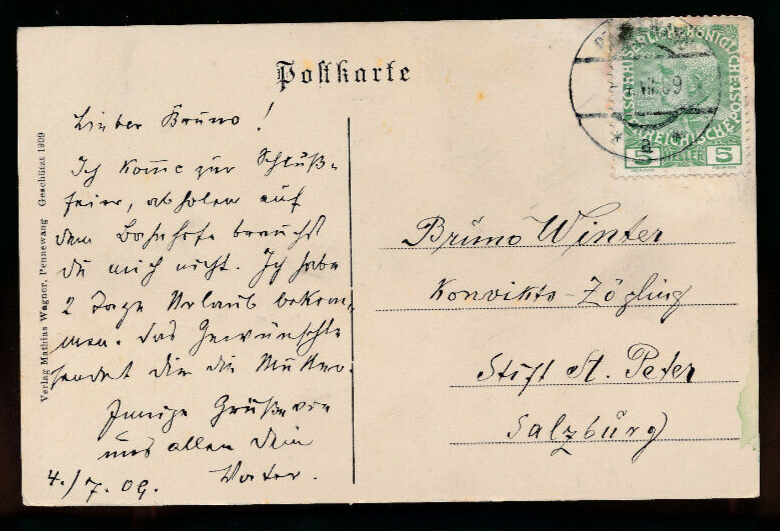 Postkarte
Lieber Bruno!
Ich komme zur Schluß-
feier, abholen auf
dem Bahnhofe brauchst
du mich nicht. Ich habe
2 Tage Urlaub bekom-
men. Das Gewünschte
sendet dir die Mutter.
Innige Grüße von
uns allen Dein
4./7.09. Vater.
Verlag Mathias Wagner, Pennewang Geschützt 1909
KAISERLICHKÖNIGLICHE
ÖSTERREICHISCHE POST
5 HELLER 5
VII 09
a
Bruno Winter
Konvikts-Zögling
Stift St. Peter
Salzburg